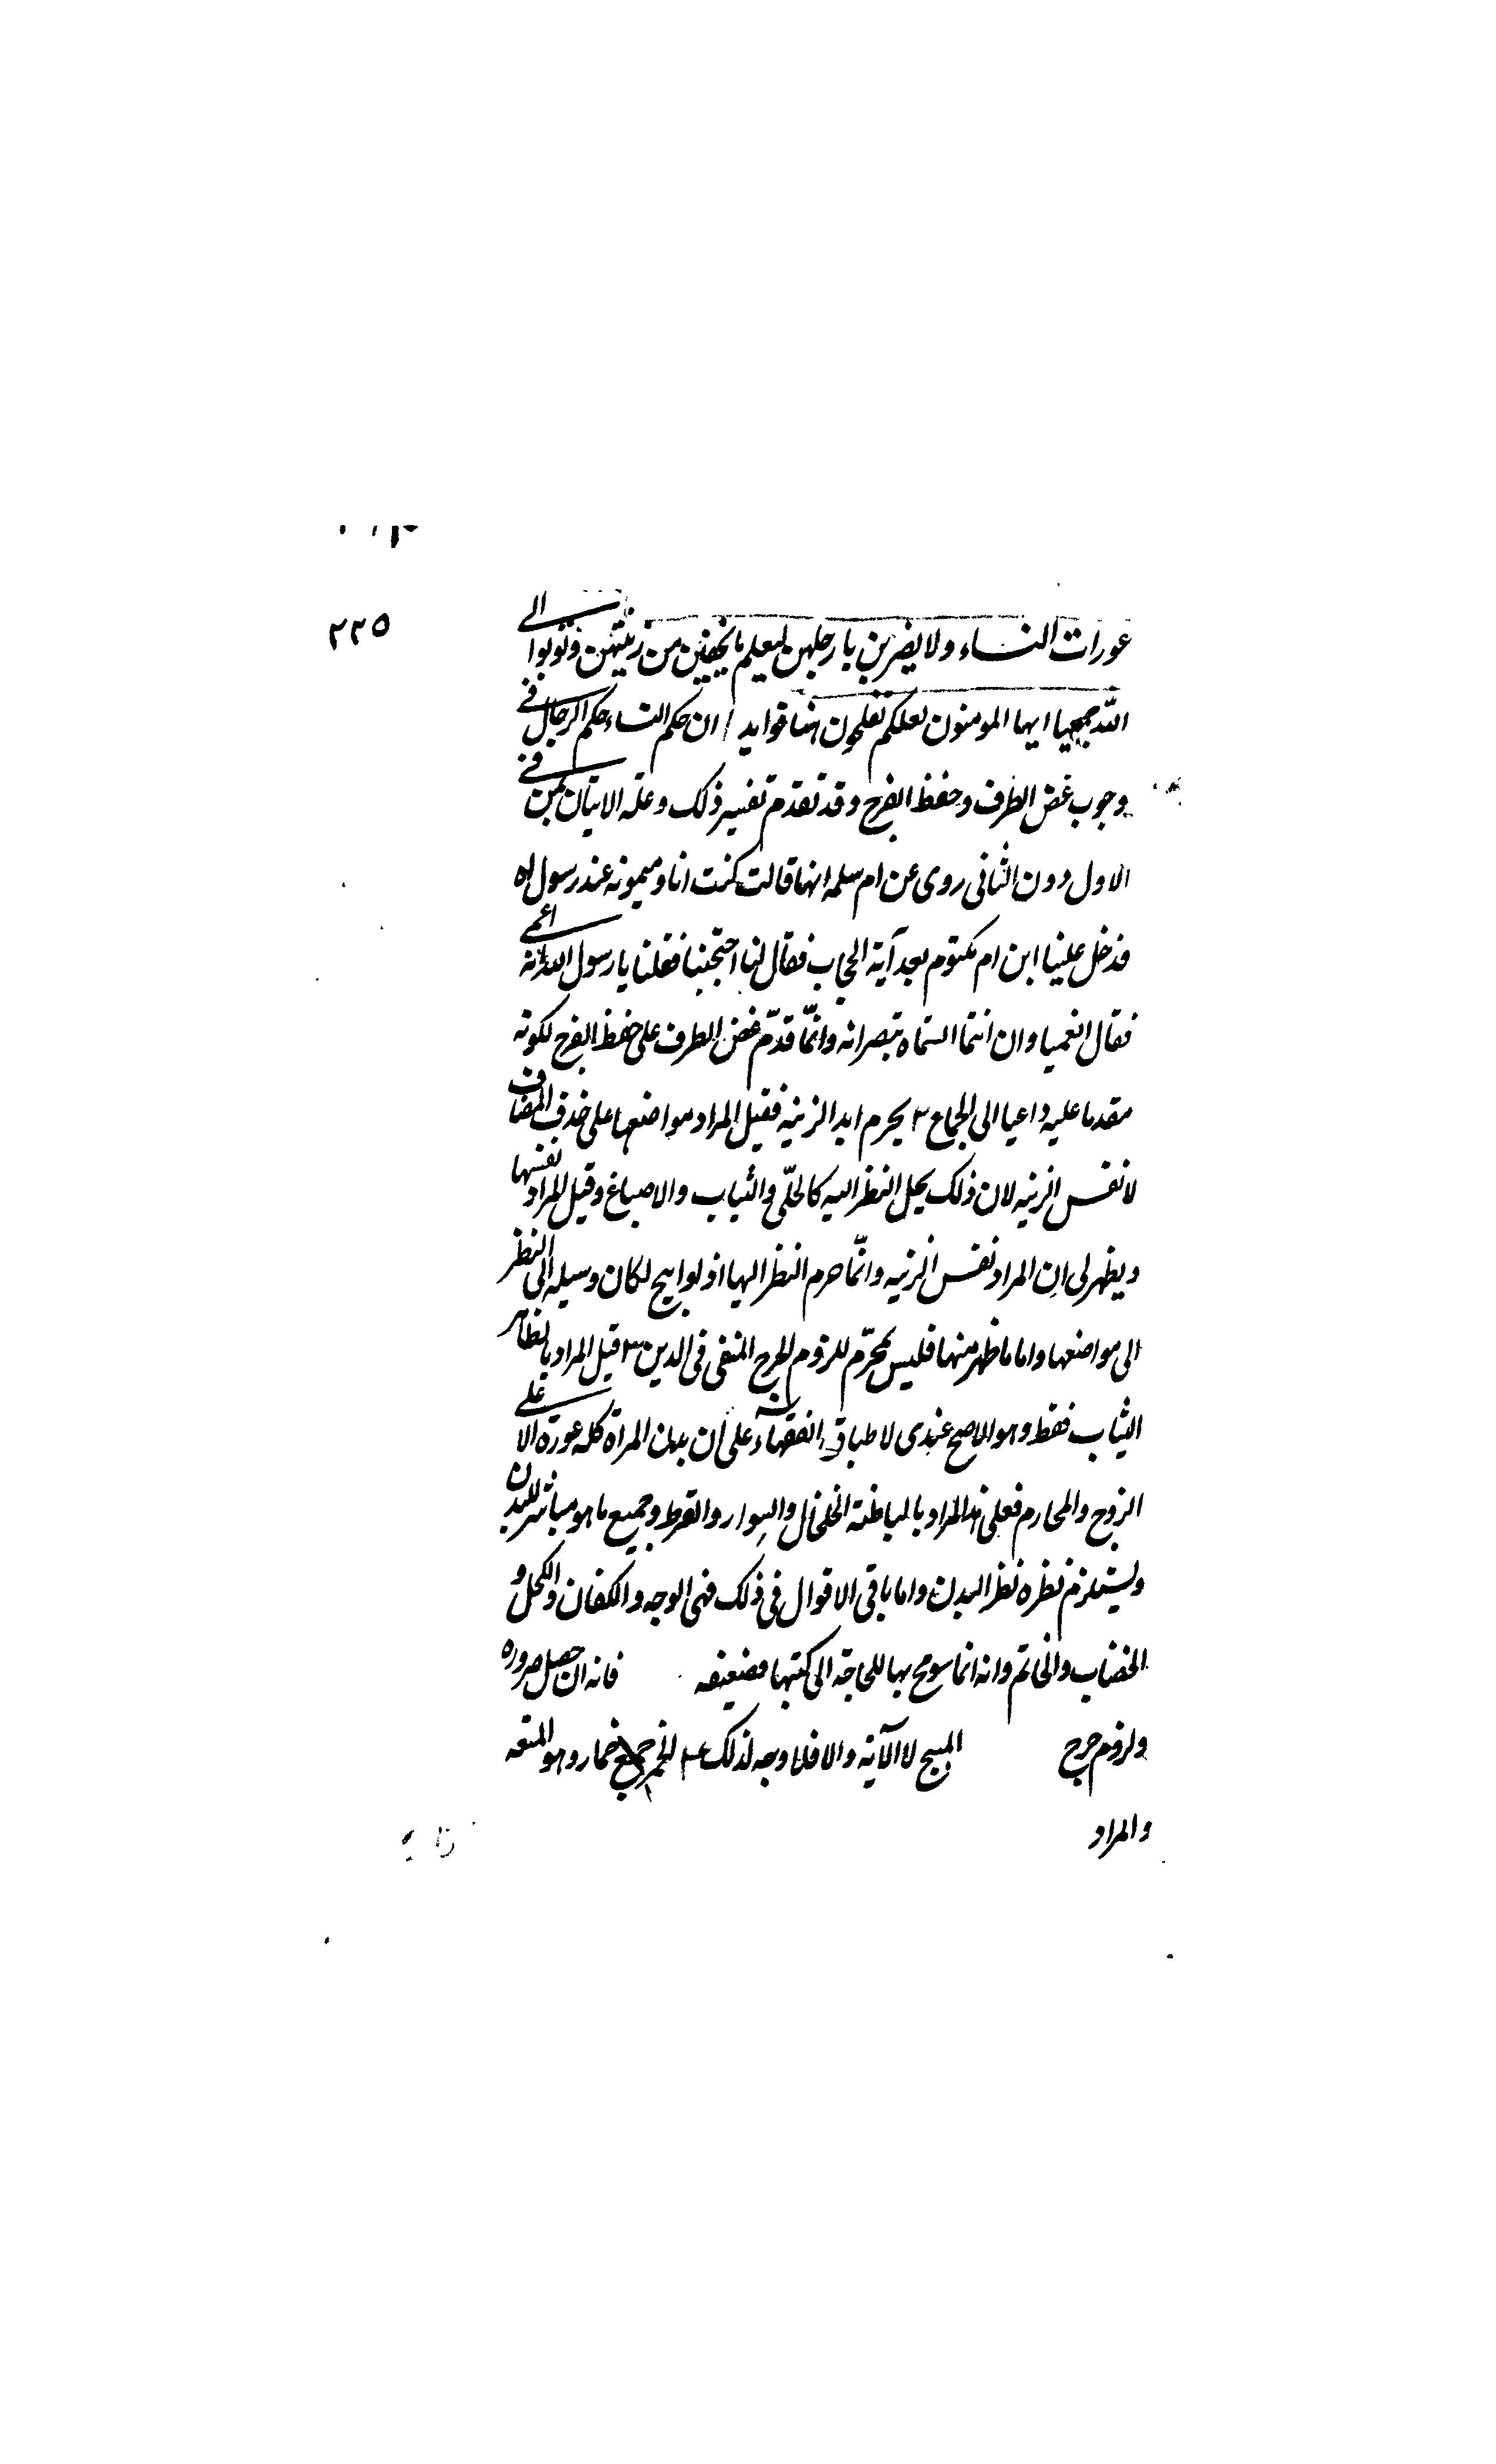 ٢٢٥
عورات النساء ولا يضربن بارجلهن ليعلم ما يخفين من زينتهن وتوبوا الى
الله جميعا ايها المومنون لعلكم تفلحون هنا فوايد ا ان حكم النساء حكم الرجال في
وجوب غض الطرف وحفظ الفرج وقد تقدم تفسير ذلك وعلة الاتيان بمن في
الاول دون الثاني روى عن ام سلمه انها قالت كنت انا وميمونه عند رسول الله
فدخل علينا ابن ام مكتوم بعد آية الحجاب فقال لنا احتجبنا فقلنا يا رسول الله انه اعمى
فقال افعمياوان انتما الستماه تبصرانه وانّما قدّم غض الطرف على حفظ الفرج لكونه
مقدما عليه داعيا الى الجماع ٢ يحرم ابدا الزينه فقيل المراد مواضعها على حذف المضاف
لا نفس الزينه لان ذلك يحل النظر اليه كالحلّى والثياب والاصباغ وقيل المراد نفسها
ويظهر لى ان المراد نفس الزينه وانّما حرم النظر اليها اذ لو ابيح لكان وسيله الى النظر
الى مواضعها واما ما ظهر منها فليس بمحرّم للزوم الحرج المنفى فى الدين ٣ قيل المراد بالظاهر
الثياب فقط وهو الاصح عندى لاطباق الفقهآء على ان بدن المراة كله عورة الا على
الزوج والمحارم فعلى هذا المراد بالباطنة الخلخال والسوار والقرط وجميع ما هو مباشر للبدن
ويستلزم نظره نظر البدن واما باقى الاقوال فى ذلك فهى الوجه والكفان والكحل و
الخضاب والخاتم وانه انما سومح بها للحاجة الى كشفها فضعيفه فانه ان حصل ضروره
ولزوم حرج المبيح لا الآية والا فلا وجه لذلك ٤ الخمر جمع خمار وهو المقنعه
والمراد